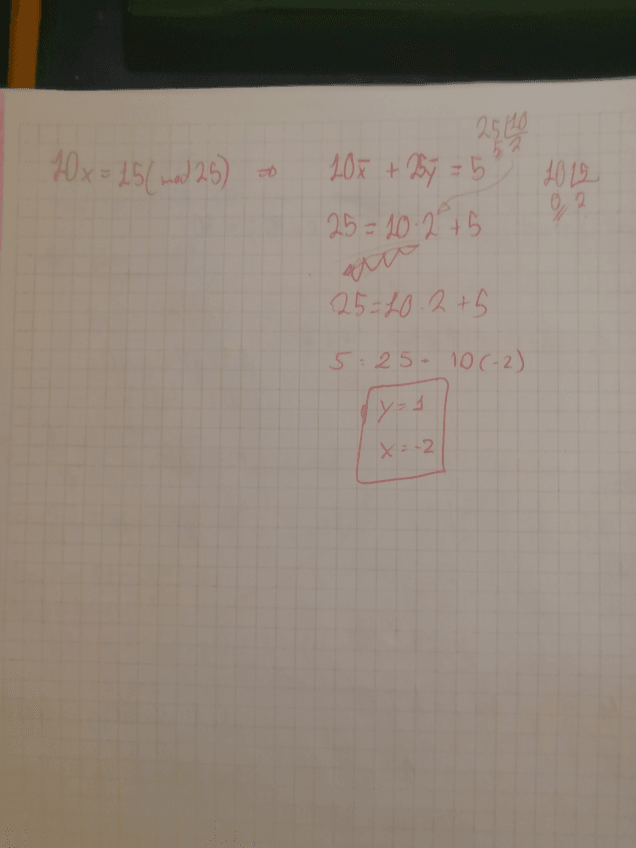 10x = 15 (mod 25) ⇒ 10x̄ + 25ȳ = 5
25 | 10
5 2
10 | 5
0 2
25 = 10 · 2 + 5
25 = 10 · 2 + 5
5 = 25 - 10 (-2)
y = 1
x = -2